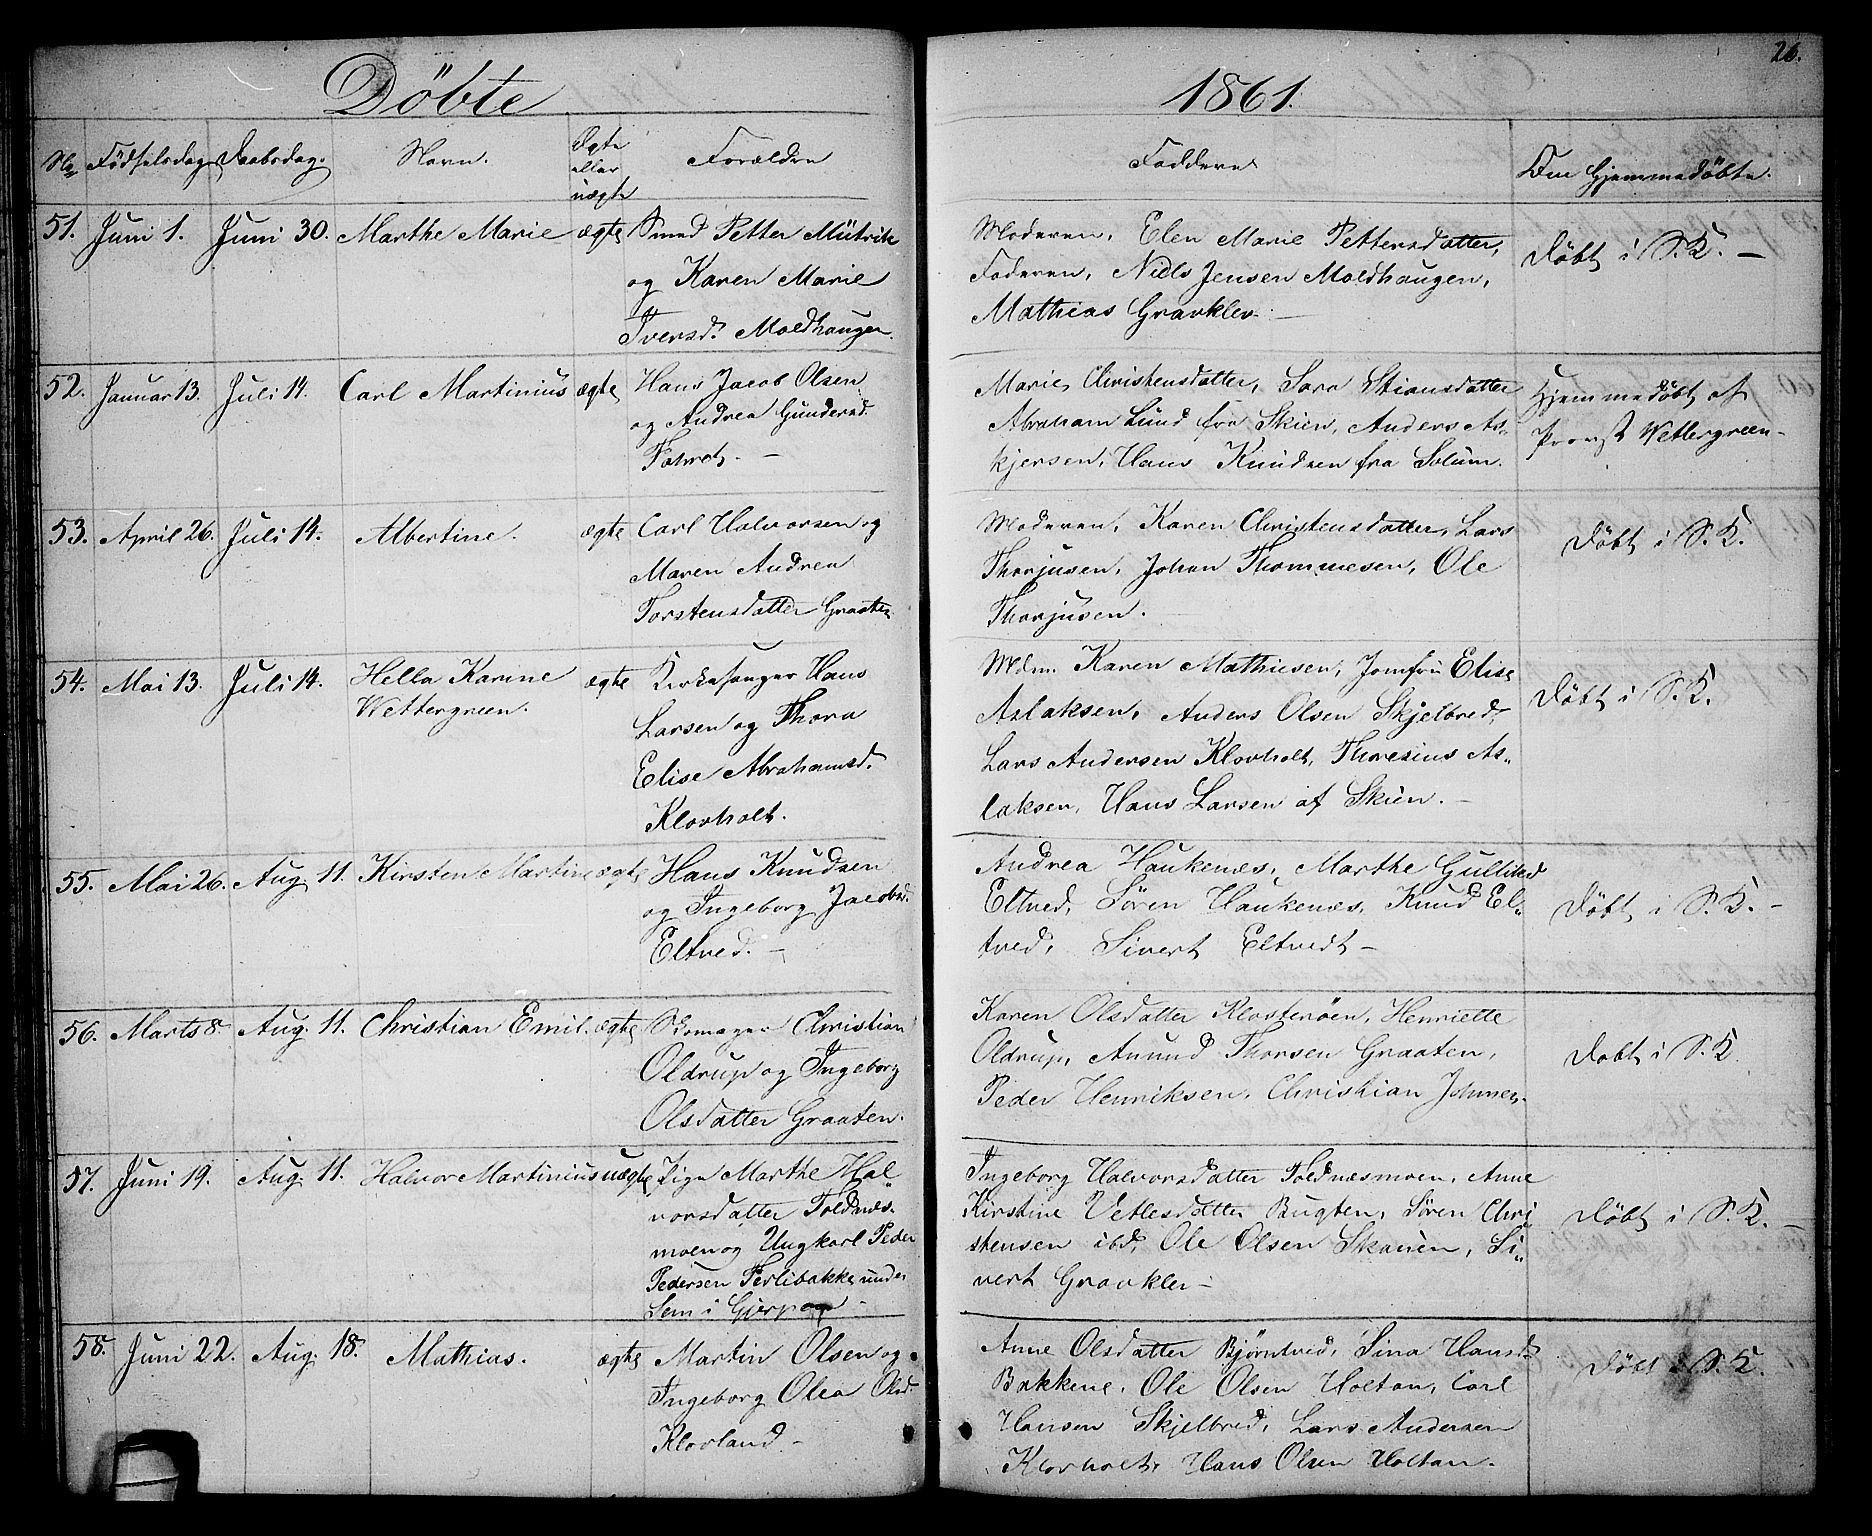 Döbte
1861.
26.
No Födselsdag. Daabsdag. Navn. Ægte eller uægte Forældre
Faddere Om Hjemmedöbte.
51. Juni 1. Juni 30. Marthe Marie ægte Smed Petter Mütrik
og Karen Marie
Iversd. Moldhaugen.
Moderen, Elen Marie Pettersdatter,
Faderen, Niels Jensen Moldhaugen,
Mathias Gravklev. —
Döbt i S. K. —
52. Januar 13. Juli 14. Carl Martinius ægte Hans Jacob Olsen
og Andrea Gundersd.
—
Marie Christensdatter, Sara Stiansdatter
Abraham Lund fra Skien, Anders As„
kjersen, Hans Knudsen fra Solum.
Hjemmedöbt af
Provst Wettergreen -
53. April 26. Juli 14. Albertine. ægte Carl Halvorsen og
Maren Andrea
Torstensdatter Graaten
Moderen, Karen Christensdatter, Lars
Thorjusen, Johan Thommesen, Ole
Thorjusen.
Döbt i S. K.
54. Mai 13. Juli 14. Hella Karine ægte Kirkesanger Hans
Wettergreen.
Larsen og Thora
Elise Abrahamsd.
Klovholt.
Mdm. Karen Mathiesen, Jomfru Elise
Aslaksen, Anders Olsen Skjelbred,
Lars Andersen Klovholt, Thoresius As„
laksen, Hans Larsen af Skien. —
Döbt i S. K.
55. Mai 26. Aug. 11. Kirsten Martine ægte Hans Knudsen
og Ingeborg Jacobsd.
Eltved. —
Andrea Haukenæs, Marthe Gulliksd
Eltved, Sören Haukenæs, Knud El„
tved, Sivert Eltvedt —
Döbt i S. K. —
56. Marts 8. Aug. 11. Christian Emil. ægte Skomager Christian
Oldrup og Ingeborg
Olsdatter Graaten.
Karen Olsdatter Klosteröen, Henriette
Oldrup, Amund Thorsen Graaten,
Peder Henriksen, Christian Johnsen.
Döbt i S. K.
57. Juni 19. Aug. 11. Halvor Martinius uægte Pige Marthe Hal„
vorsdatter Foldnæs-
moen og Ungkarl Peder
Pedersen Ferlibakke under
Sem i Gjerpen —
Ingeborg Halvorsdatter Foldnæsmoen, Anne
Kirstine Vetlesdatter Bugten, Sören Chri
stensen ibd, Ole Olsen Skauen, Si„
vert Gravklev —
Döbt i S. K. —
58. Juni 22. Aug. 18. Mathias. ægte Martin Olsen og
Ingeborg Olea Olsd.
Klovland —
Anne Olsdatter Björntved, Sina Hansd.
Bakkene, Ole Olsen Holtan, Carl
Hansen Skjelbred, Lars Andersen
Klovholt, Hans Olsen Holtan.
Döbt i S. K.